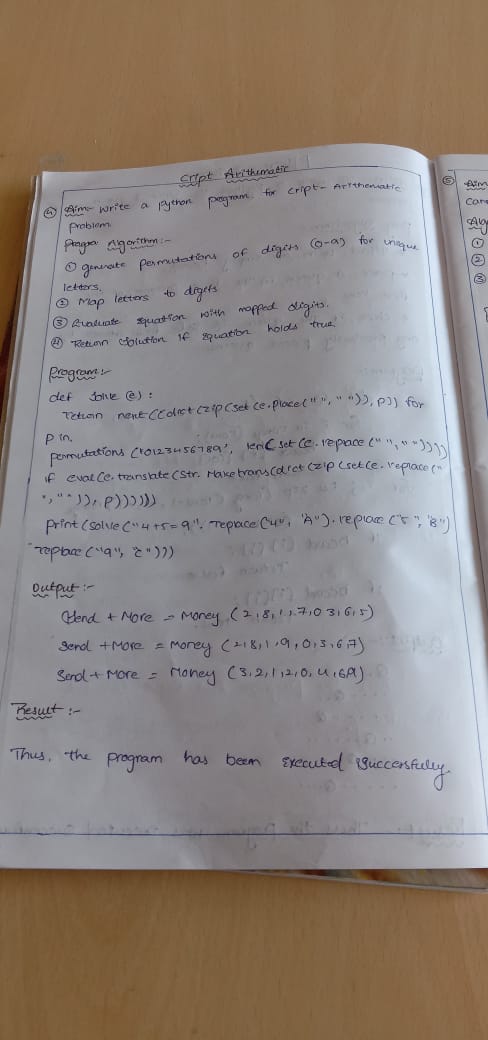 Cript Arithematic
④ Aim- write a python program for cript- Arithematic
Problem
Algorithm:-
① generate permutations of digits (0-9) for unique
letters.
② Map letters to digits
③ Evaluate equation with mapped digits.
④ Return solution if equation holds true.
Program:-
def solve (e) :
return next ((dict (zip (set (e. place (" ", " ")), p)) for
p in
permutations ('0123456789', len( set (e. replace (" ", " "))))
if eval (e. translate (str. Maketrans (dict (zip (set (e. replace ("
", " ")), p))))))
print (solve ("4+5=9". replace ("4", "A"). replace ("5", "B")
replace ("9", "c")))
Output :-
Send + More = Money (2,8,1,7,0 3,6,5)
Send + More = Money (2,8,1,9,0,3,67)
Send + More = Money (3,2,1,2,0,4,69)
Result :-
Thus, the program has been executed successfully.
⑤ Aim
Can
Alg
①
②
③